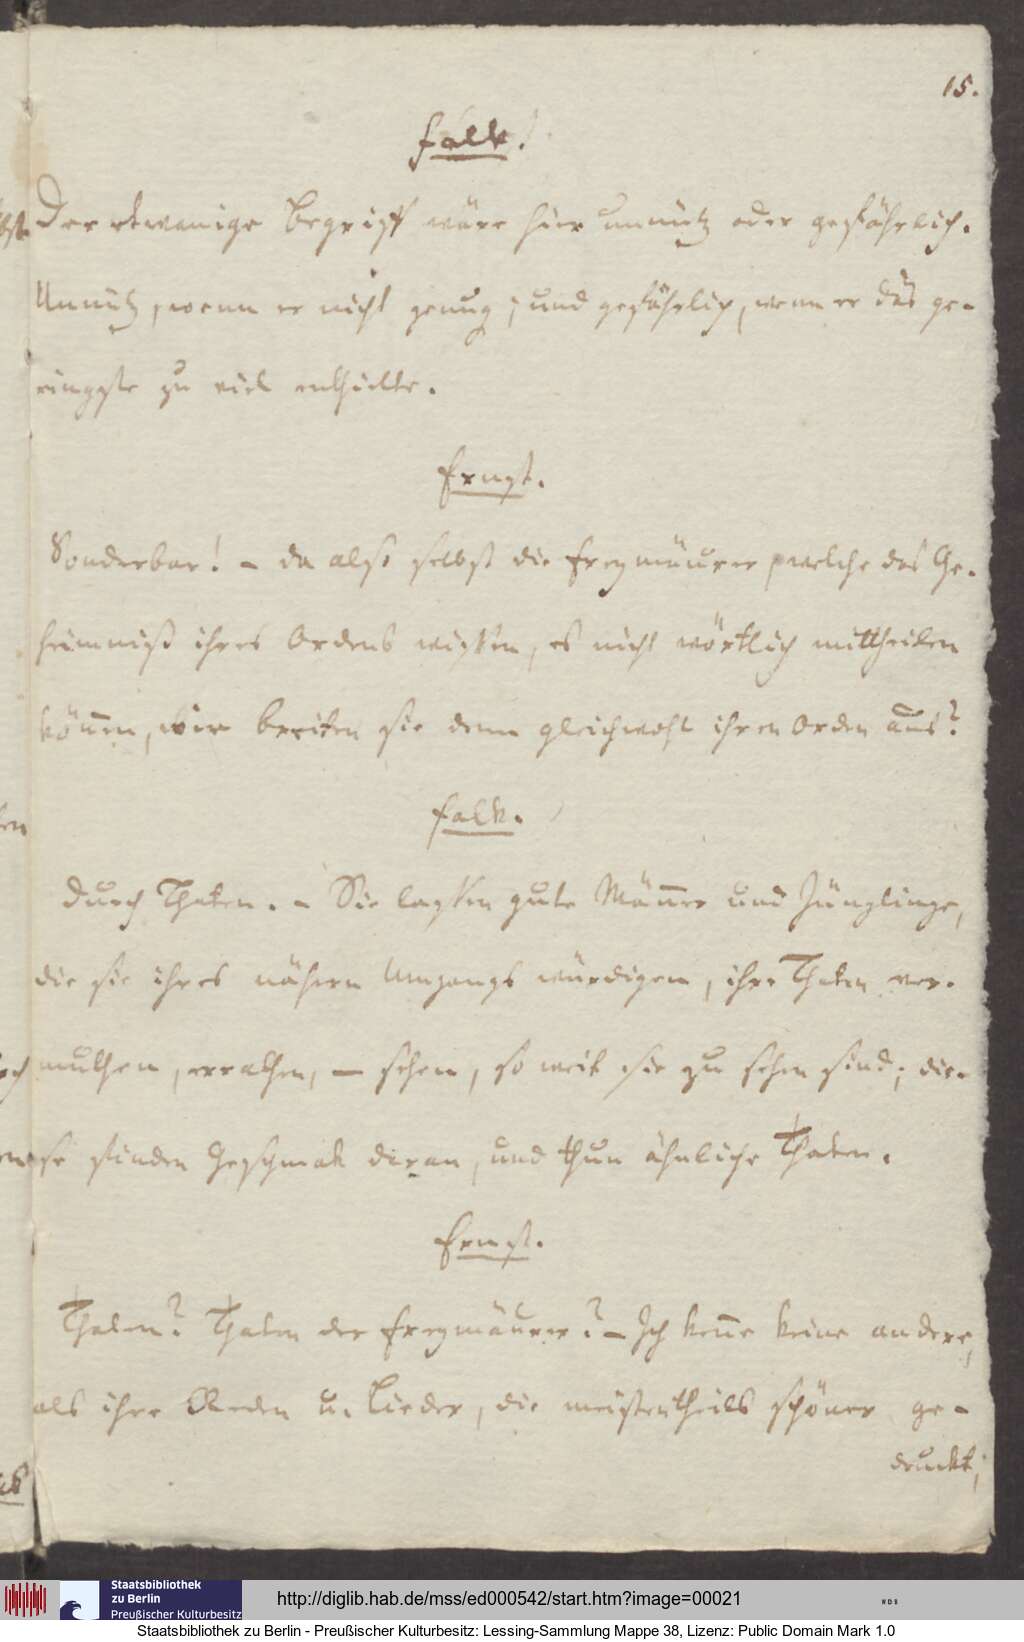 15.
Falk.
Der etwanige Begriff wäre hier unnütz oder gefährlich.
Unnütz, wenn er nicht genug; und gefährlich, wenn er das ge-
ringste zu viel enthielte.
Ernst.
Sonderbar! – da also selbst die Freymäurer welche das Ge-
heimniß ihres Ordens wissen, es nicht wörtlich mittheilen
können, wie breiten sie denn gleichwohl ihren Orden aus?
Falk.
Durch Thaten. – Sie lassen gute Männer und Jünglinge,
die sie ihres nähern Umgangs würdigen, ihre Thaten ver-
muthen, errathen, – sehen, so weit sie zu sehen sind; die-
se finden Geschmak daran, und thun ähnliche Thaten.
Ernst.
Thaten? Thaten der Freymäurer? – Ich kenne keine andere,
als ihre Reden u. Lieder, die meistentheils schöner ge-
druckt,
Staatsbibliothek
zu Berlin
Preußischer Kulturbesitz
http://diglib.hab.de/mss/ed000542/start.htm?image=00021
Staatsbibliothek zu Berlin - Preußischer Kulturbesitz: Lessing-Sammlung Mappe 38, Lizenz: Public Domain Mark 1.0